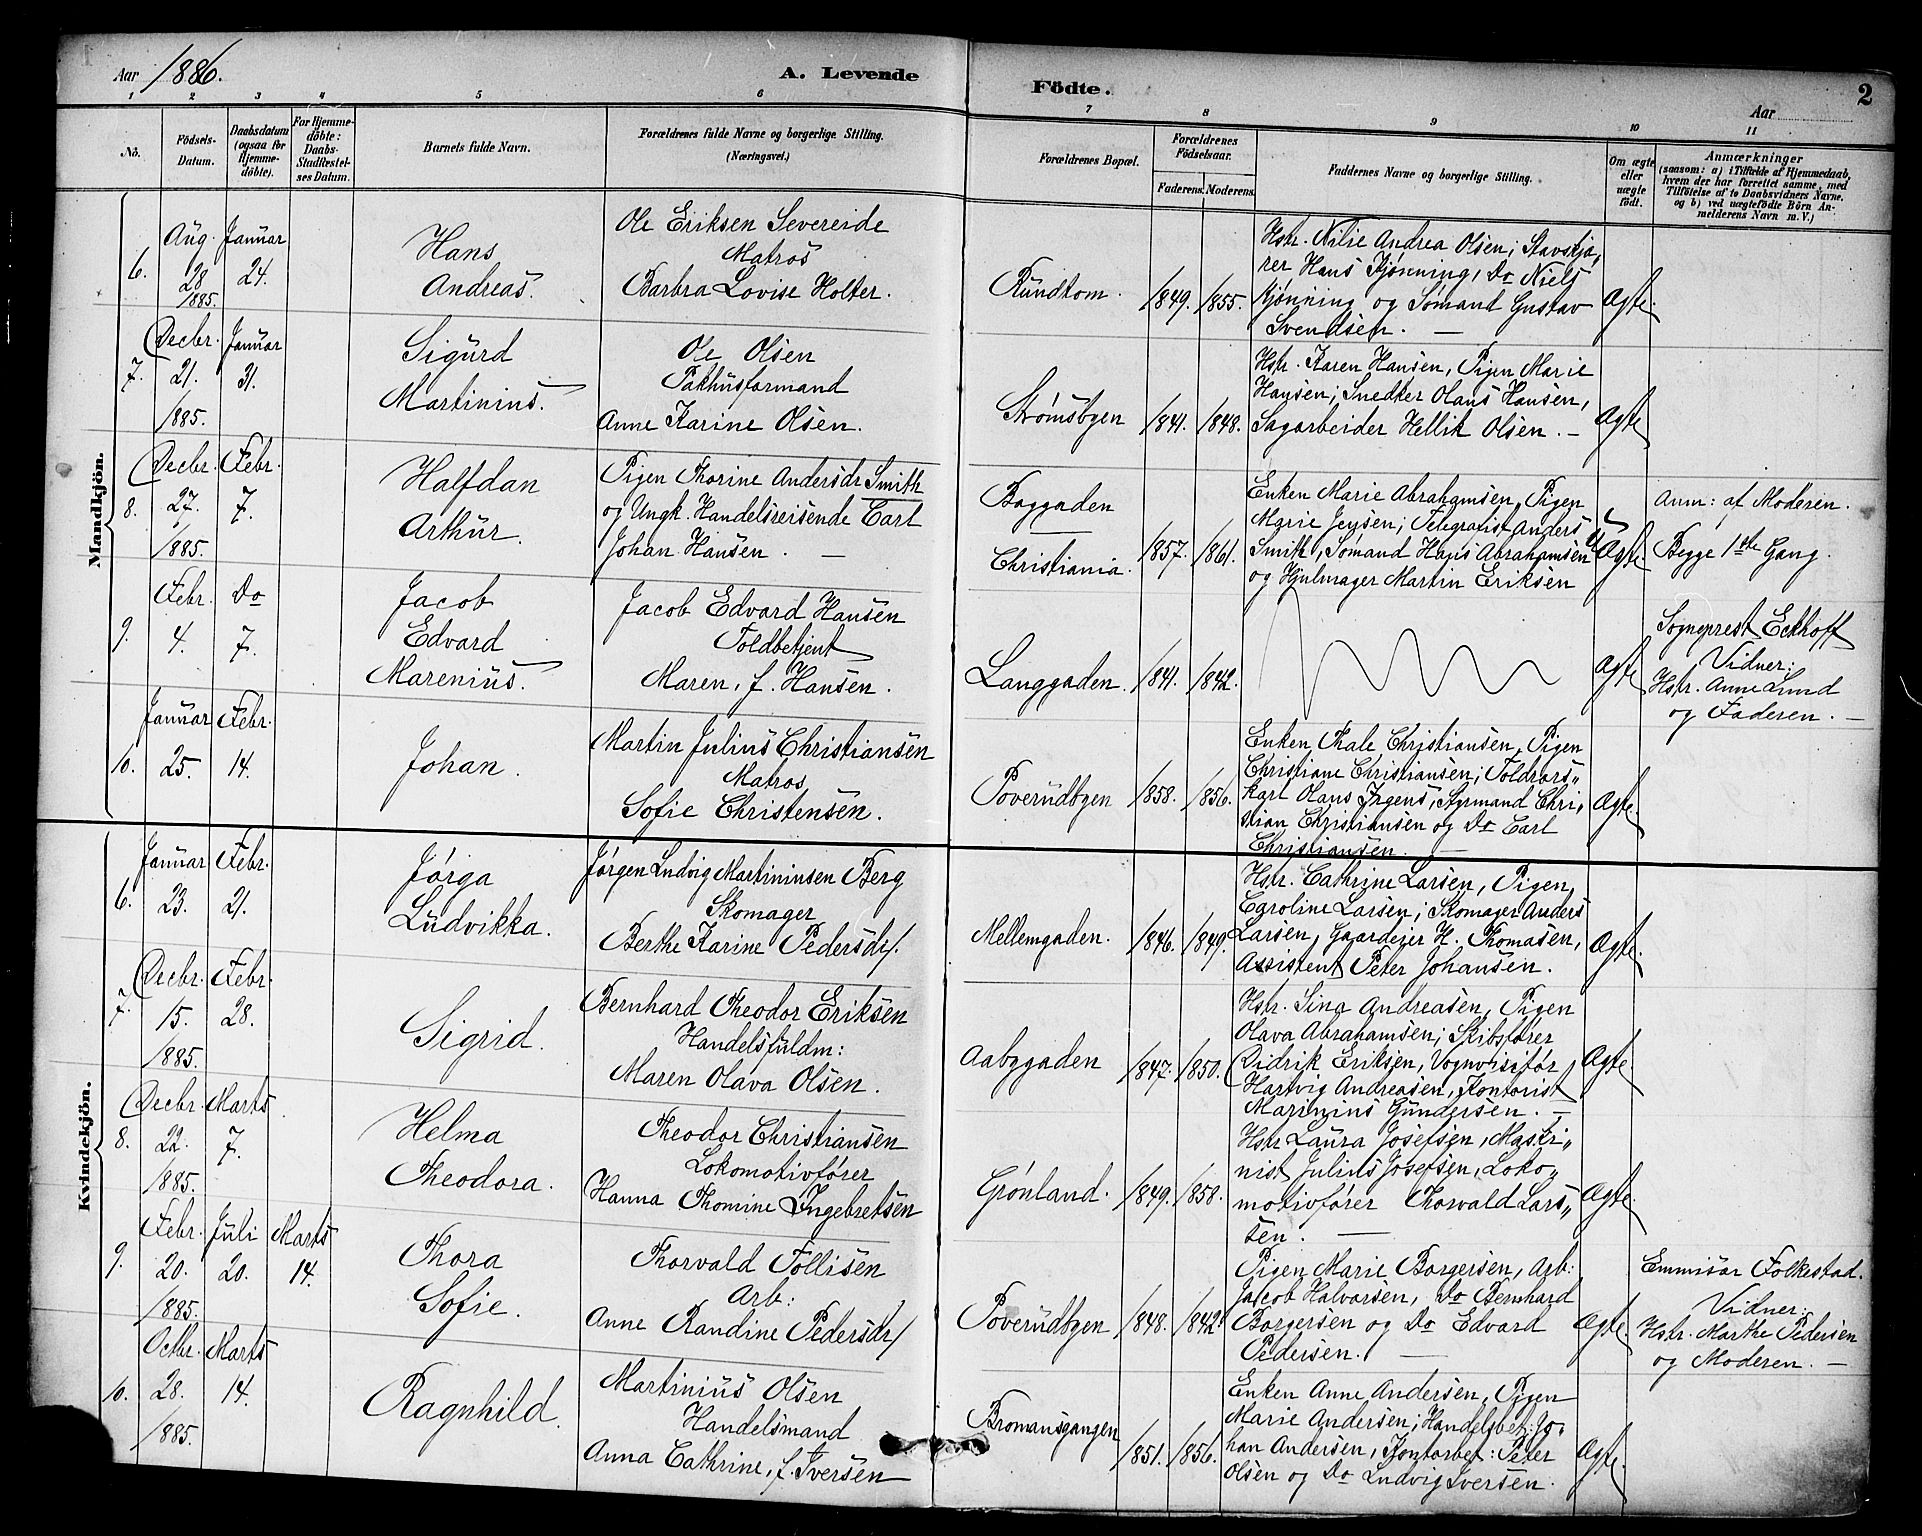 Aar 1886.
A. Levende
Födte.
Aar
2
1 2 3 4 5 6 7 8 9 10 11
No.
Födsels-Datum.
Daabsdatum (ogsaa for Hjemme-döbte).
For Hjemme-döbte: Daabs-Stadfestel-ses Datum.
Barnets fulde Navn.
Forældrenes fulde Navne og borgerlige Stilling.
(Næringsvei.)
Forældrenes Bopæl.
Forældrenes Födselsaar.
Faderens. Moderens.
Faddernes Navne og borgerlige Stilling.
Om ægte eller uægte födt.
Anmærkninger
(saasom: a) i Tilfælde af Hjemmedaab,
hvem der har forrettet samme, med
Tilföielse af to Daabsvidners Navne.
og b) ved uægtefödte Börn An-
melderens Navn m. V.)
Mandkjön.
6.
Aug. 28 1885.
Januar 24.
Hans
Andreas.
Ole Eriksen Severeide
Matros
Barbra Lovise Holter.
Rundtom.
1849. 1855.
Hstr. Nilie Andrea Olsen; Stavskjæ,
rer Hans Kjønning, Do Niels
Kjønning og Sømand Gustav
Svendsen. —
Ægte.
7.
Decbr. 21. 1885.
Januar 31.
Sigurd
Martinius.
Ole Olsen
Pakhusformand
Anne Karine Olsen.
Strømsbyen
1841. 1848.
Hstr. Karen Hansen, Pigen Marie
Hansen; Snedker Olaus Hansen,
Sagarbeider Hellik Olsen. —
Ægte
8.
Decbr. 27. 1885.
Febr. 7.
Halfdan
Arthur.
Pigen Thorine Andersdr Smith
og Ungk. Handelsreisende Carl
Johan Hansen. —
Baggaden
Christiania.
1857. 1861.
Enken Marie Abrahamsen, Pigen
Marie Jensen; Telegrafist Anders
Smith, Sømand Hans Abrahamsen
og Hjulmager Martin Eriksen
U
Ægte.
Anm: af Moderen.
Begge 1ste Gang.
9.
Febr. 4.
Do 7.
Jacob
Edvard
Marenius.
Jacob Edvard Hansen
Toldbetjent
Maren, f. Hansen.
Langgaden.
1841. 1842.
Ægte
Sogneprest Eckhoff
Vidner:
Hstr. Anne Lund
og Faderen. —
10.
Januar 25.
Febr. 14.
Johan.
Martin Julius Christiansen
Matros
Sofie Christensen.
Poverudbyen
1858. 1856.
Enken Thale Christiansen, Pigen
Christiane Christiansen; Toldrors„
karl Olaus Jrgens, Styrmand Chri„
stian Christiansen og Do Carl
Christiansen. —
Ægte.
Kvindekjön.
6.
Januar 23.
Febr. 21.
Jørga
Ludvikka.
Jørgen Ludvig Martiniusen Berg
Skomager
Berthe Karine Pedersdr.
Mellemgaden.
1846. 1849.
Hstr. Cathrine Larsen, Pigen
Caroline Larsen; Skomager Anders
Larsen, Gaardejer H. Thomasen,
Assistent Peter Johansen.
Ægte.
7.
Decbr. 15. 1885.
Febr. 28.
Sigrid.
Bernhard Theodor Eriksen
Handelsfuldm:
Maren Olava Olsen.
Aabyggaden
1847. 1850.
Hstr. Sina Andreasen, Pigen
Olava Abrahamsen; Skibsfører
Didrik Eriksen, Vognvisitør
Hartvig Andreasen, Kontorist
Marinius Gundersen. —
Ægte.
8.
Decbr. 22. 1885.
Marts 7.
Helma
Theodora.
Theodor Christiansen
Lokomotivfører
Hanna Thomine Ingebretsen
Grønland.
1849. 1858.
Hstr Laura Josefsen, Maski„
nist Julius Josefsen, Loko„
motivfører Thorvald Lars„
sen. —
Ægte.
9.
Febr. 20. 1885.
Juli 20.
Marts 14.
Thora
Sofie.
Thorvald Tollisen
Arb:
Anne Randine Pedersdr
Poverudbyen
1848. 1842.
Pigen Marie Borgersen, Arb:
Jacob Halvorsen, Do Bernhard
Borgersen og Do Edvard
Pedersen. —
Ægte.
Emmisær Folkestad.
Vidner:
Hstr. Marthe Pedersen
og Moderen. —
10.
Octbr. 28. 1885.
Marts 14.
Ragnhild.
Martinius Olsen
Handelsmand
Anna Cathrine, f. Iversen
Bromansgangen
1851. 1856.
Enken Anne Andersen, Pigen
Marie Andersen; Handelsbet: Jo„
han Andersen, Kontorbet: Peter
Olsen og Do Ludvig Iversen.
Ægte.